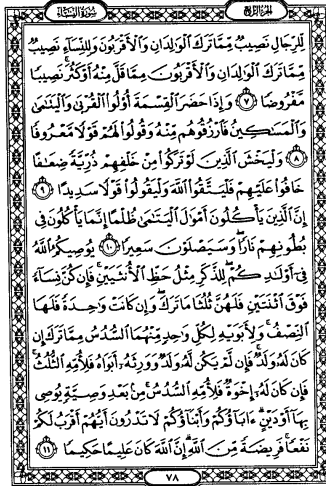 الجزء الرابع
سورة النساء
لِّلرِّجَالِ نَصِيبٌ مِّمَّا تَرَكَ الْوَالِدَانِ وَالْأَقْرَبُونَ وَلِلنِّسَاءِ نَصِيبٌ
مِّمَّا تَرَكَ الْوَالِدَانِ وَالْأَقْرَبُونَ مِمَّا قَلَّ مِنْهُ أَوْ كَثُرَ نَصِيبًا
مَّفْرُوضًا ٧ وَإِذَا حَضَرَ الْقِسْمَةَ أُولُوا الْقُرْبَىٰ وَالْيَتَامَىٰ
وَالْمَسَاكِينُ فَارْزُقُوهُم مِّنْهُ وَقُولُوا لَهُمْ قَوْلًا مَّعْرُوفًا
٨ وَلْيَخْشَ الَّذِينَ لَوْ تَرَكُوا مِنْ خَلْفِهِمْ ذُرِّيَّةً ضِعَافًا
خَافُوا عَلَيْهِمْ فَلْيَتَّقُوا اللَّهَ وَلْيَقُولُوا قَوْلًا سَدِيدًا ٩
إِنَّ الَّذِينَ يَأْكُلُونَ أَمْوَالَ الْيَتَامَىٰ ظُلْمًا إِنَّمَا يَأْكُلُونَ فِي
بُطُونِهِمْ نَارًا وَسَيَصْلَوْنَ سَعِيرًا ١٠ يُوصِيكُمُ اللَّهُ
فِي أَوْلَادِكُمْ لِلذَّكَرِ مِثْلُ حَظِّ الْأُنثَيَيْنِ فَإِن كُنَّ نِسَاءً
فَوْقَ اثْنَتَيْنِ فَلَهُنَّ ثُلُثَا مَا تَرَكَ وَإِن كَانَتْ وَاحِدَةً فَلَهَا
النِّصْفُ وَلِأَبَوَيْهِ لِكُلِّ وَاحِدٍ مِّنْهُمَا السُّدُسُ مِمَّا تَرَكَ إِن
كَانَ لَهُ وَلَدٌ فَإِن لَّمْ يَكُن لَّهُ وَلَدٌ وَوَرِثَهُ أَبَوَاهُ فَلِأُمِّهِ الثُّلُثُ
فَإِن كَانَ لَهُ إِخْوَةٌ فَلِأُمِّهِ السُّدُسُ مِن بَعْدِ وَصِيَّةٍ يُوصِي
بِهَا أَوْ دَيْنٍ آبَاؤُكُمْ وَأَبْنَاؤُكُمْ لَا تَدْرُونَ أَيُّهُمْ أَقْرَبُ لَكُمْ
نَفْعًا فَرِيضَةً مِّنَ اللَّهِ إِنَّ اللَّهَ كَانَ عَلِيمًا حَكِيمًا ١١
٧٨